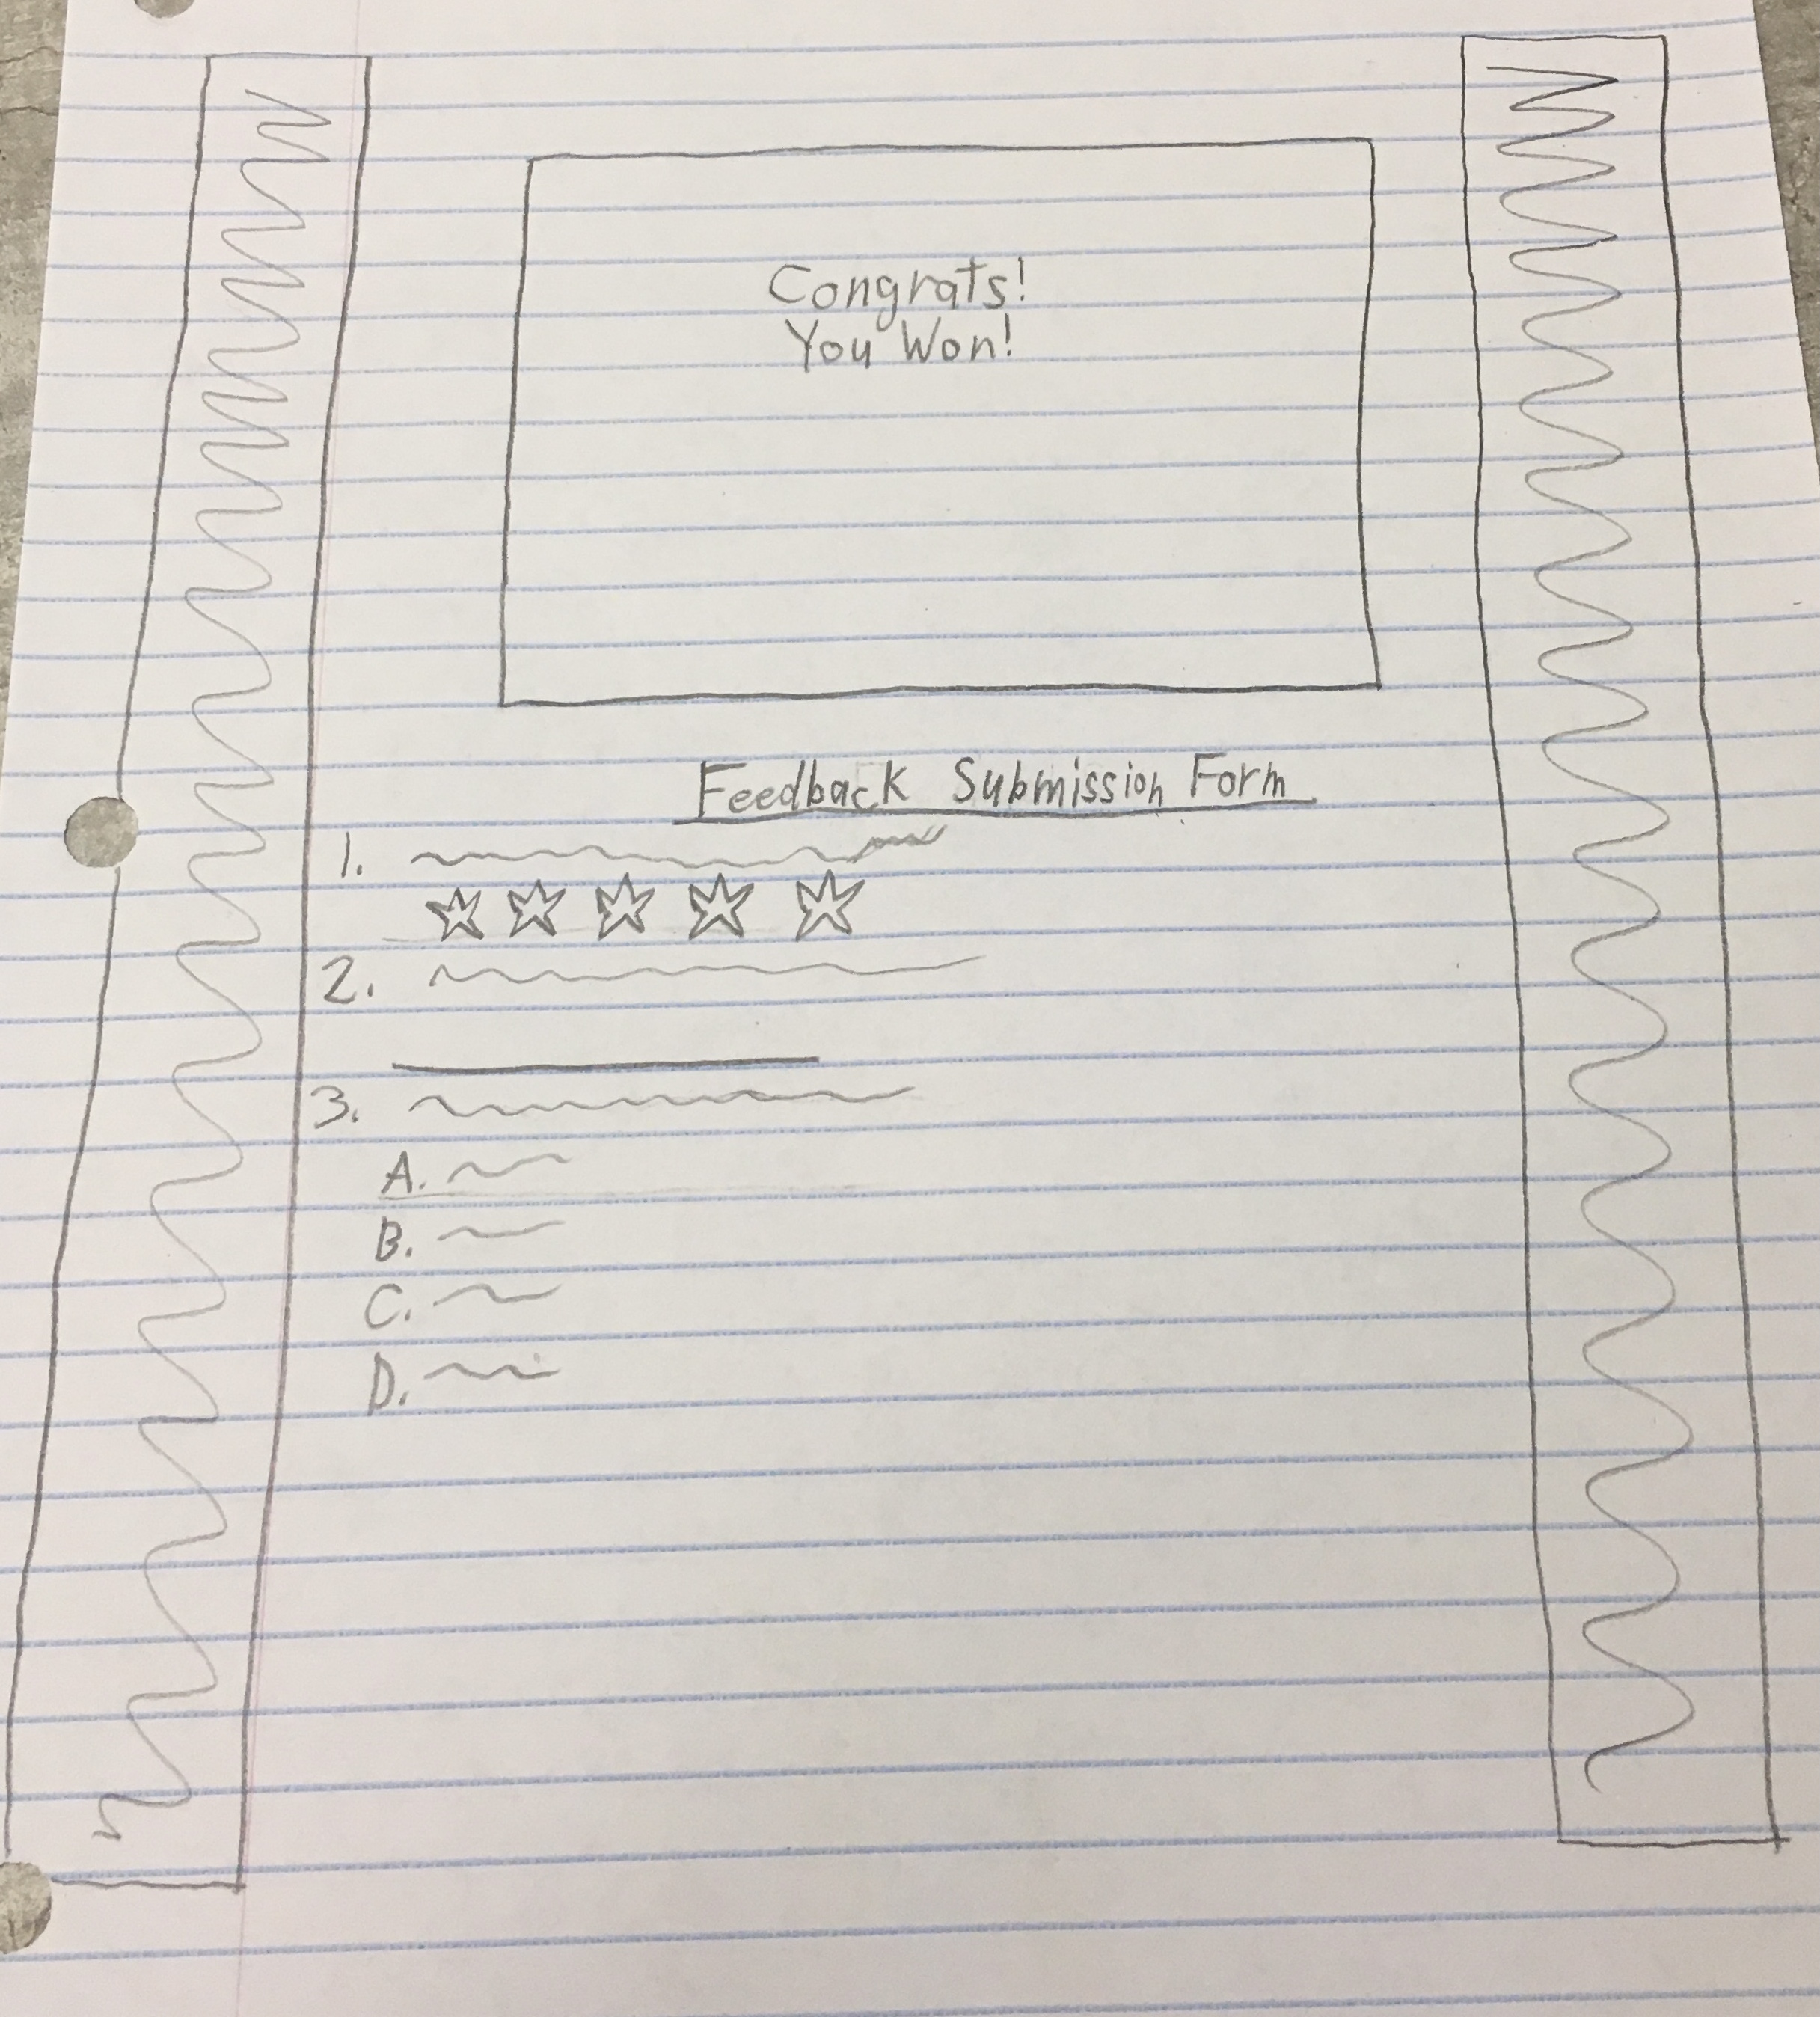 Congrats!
You Won!
Feedback Submission Form
1.
2.
3.
A.
B.
C.
D.